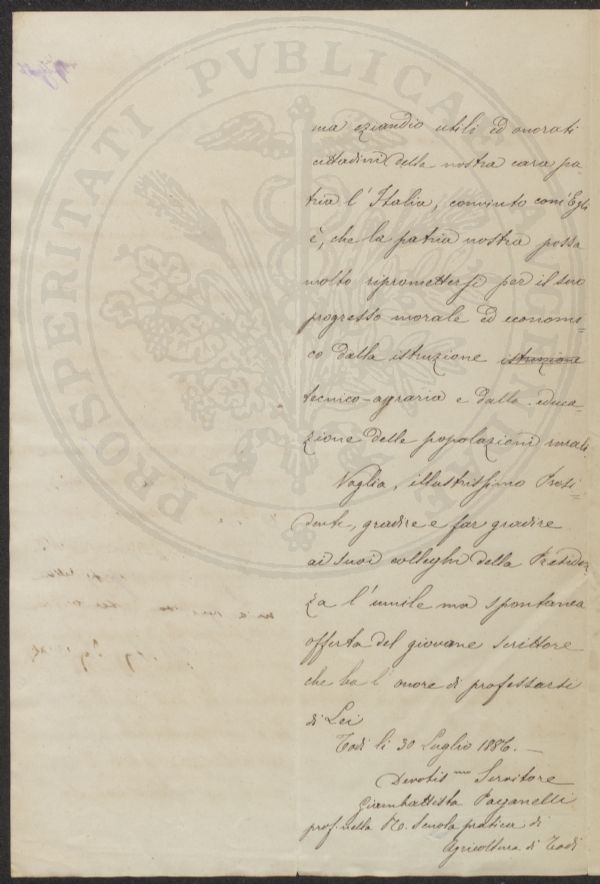 PROSPERITATI PVBLICAE
ma eziandio utili ed onorati
cittadini della nostra cara pa-
tria l'Italia, convinto com'Egli
è, che la patria nostra possa
molto ripromettersi per il suo
progresso morale ed economi=
co dalla istruzione istruzione
tecnico-agraria e dalla educa-
zione delle popolazioni rurali.
Voglia, illustrissimo Presi=
dente, gradire e far gradire
ai suoi colleghi della Presiden-
za l'umile ma spontanea
offerta del giovane scrittore
che ha l'onore di professarsi
di Lei
Todi li 30 Luglio 1886. —
Devotis mo Servitore
Giambattista Paganelli
prof. nella R. Scuola pratica di
Agricoltura di Todi